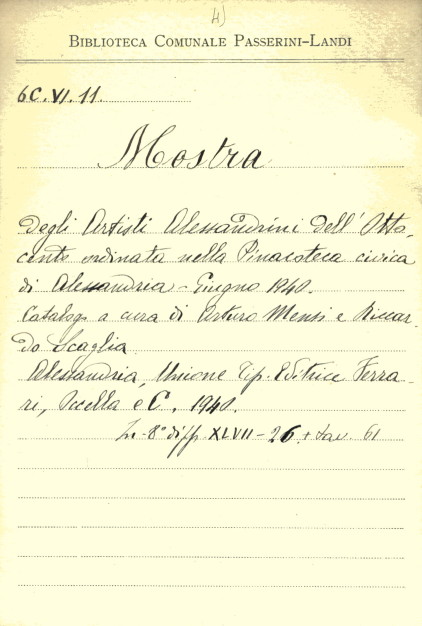 4)
BIBLIOTECA COMUNALE PASSERINI-LANDI
6C.VI.11.
Mostra
degli Artisti Alessandrini dell'Otto,
cento ordinata nella Pinacoteca civica
di Alessandria - Giugno 1940.
Catalogo a cura di Arturo Mensi e Riccar,
do Scaglia
Alessandria, Unione Tip. Editrice Ferra,
ri, Occella e C. 1940.
In-8° di pp. XLVII - 26 + tav. 61